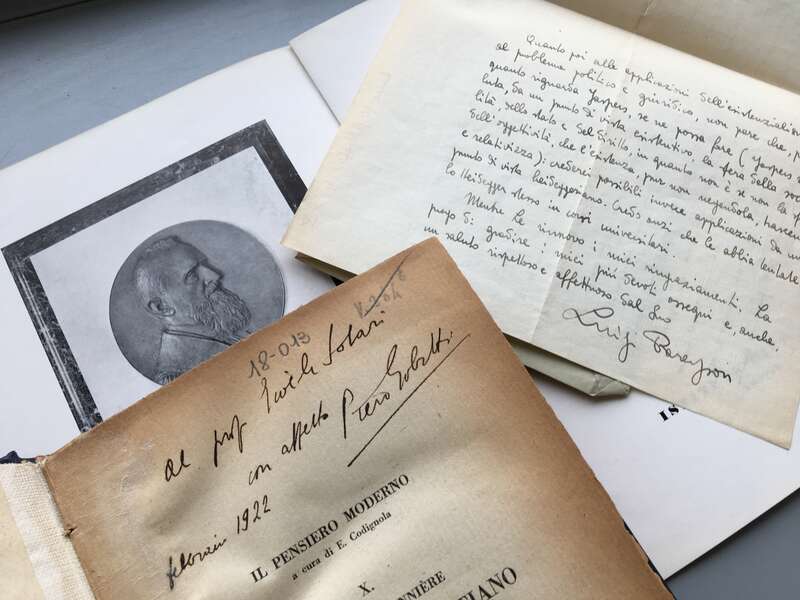 Quanto poi alle applicazioni dell'esistenzialismo
al problema politico e giuridico, non pare che, per
quanto riguarda Jaspers, se ne possa fare (Jaspers
luta, da un punto di vista esistentivo, la sfera della
lità, dello stato e del diritto, in quanto non è se non la
dell'oggettività, che l'esistenza, pur non negandola,
e relativizza): crederei possibili invece applicazioni da un
punto di vista heideggeriano. Credo anzi che le abbia tentate
lo Heidegger stesso in corsi universitari.
Mentre Le rinnovo i miei ringraziamenti, La
prego di gradire i miei più devoti ossequi e, anche,
un saluto rispettoso e affettuoso dal Suo
Luigi Pareyson
IS
18-013
al prof Gioele Solari
con affetto Piero Gobetti
febbraio 1922
IL PENSIERO MODERNO
a cura di E. Codignola
X.
NNIÈRE
FIANO